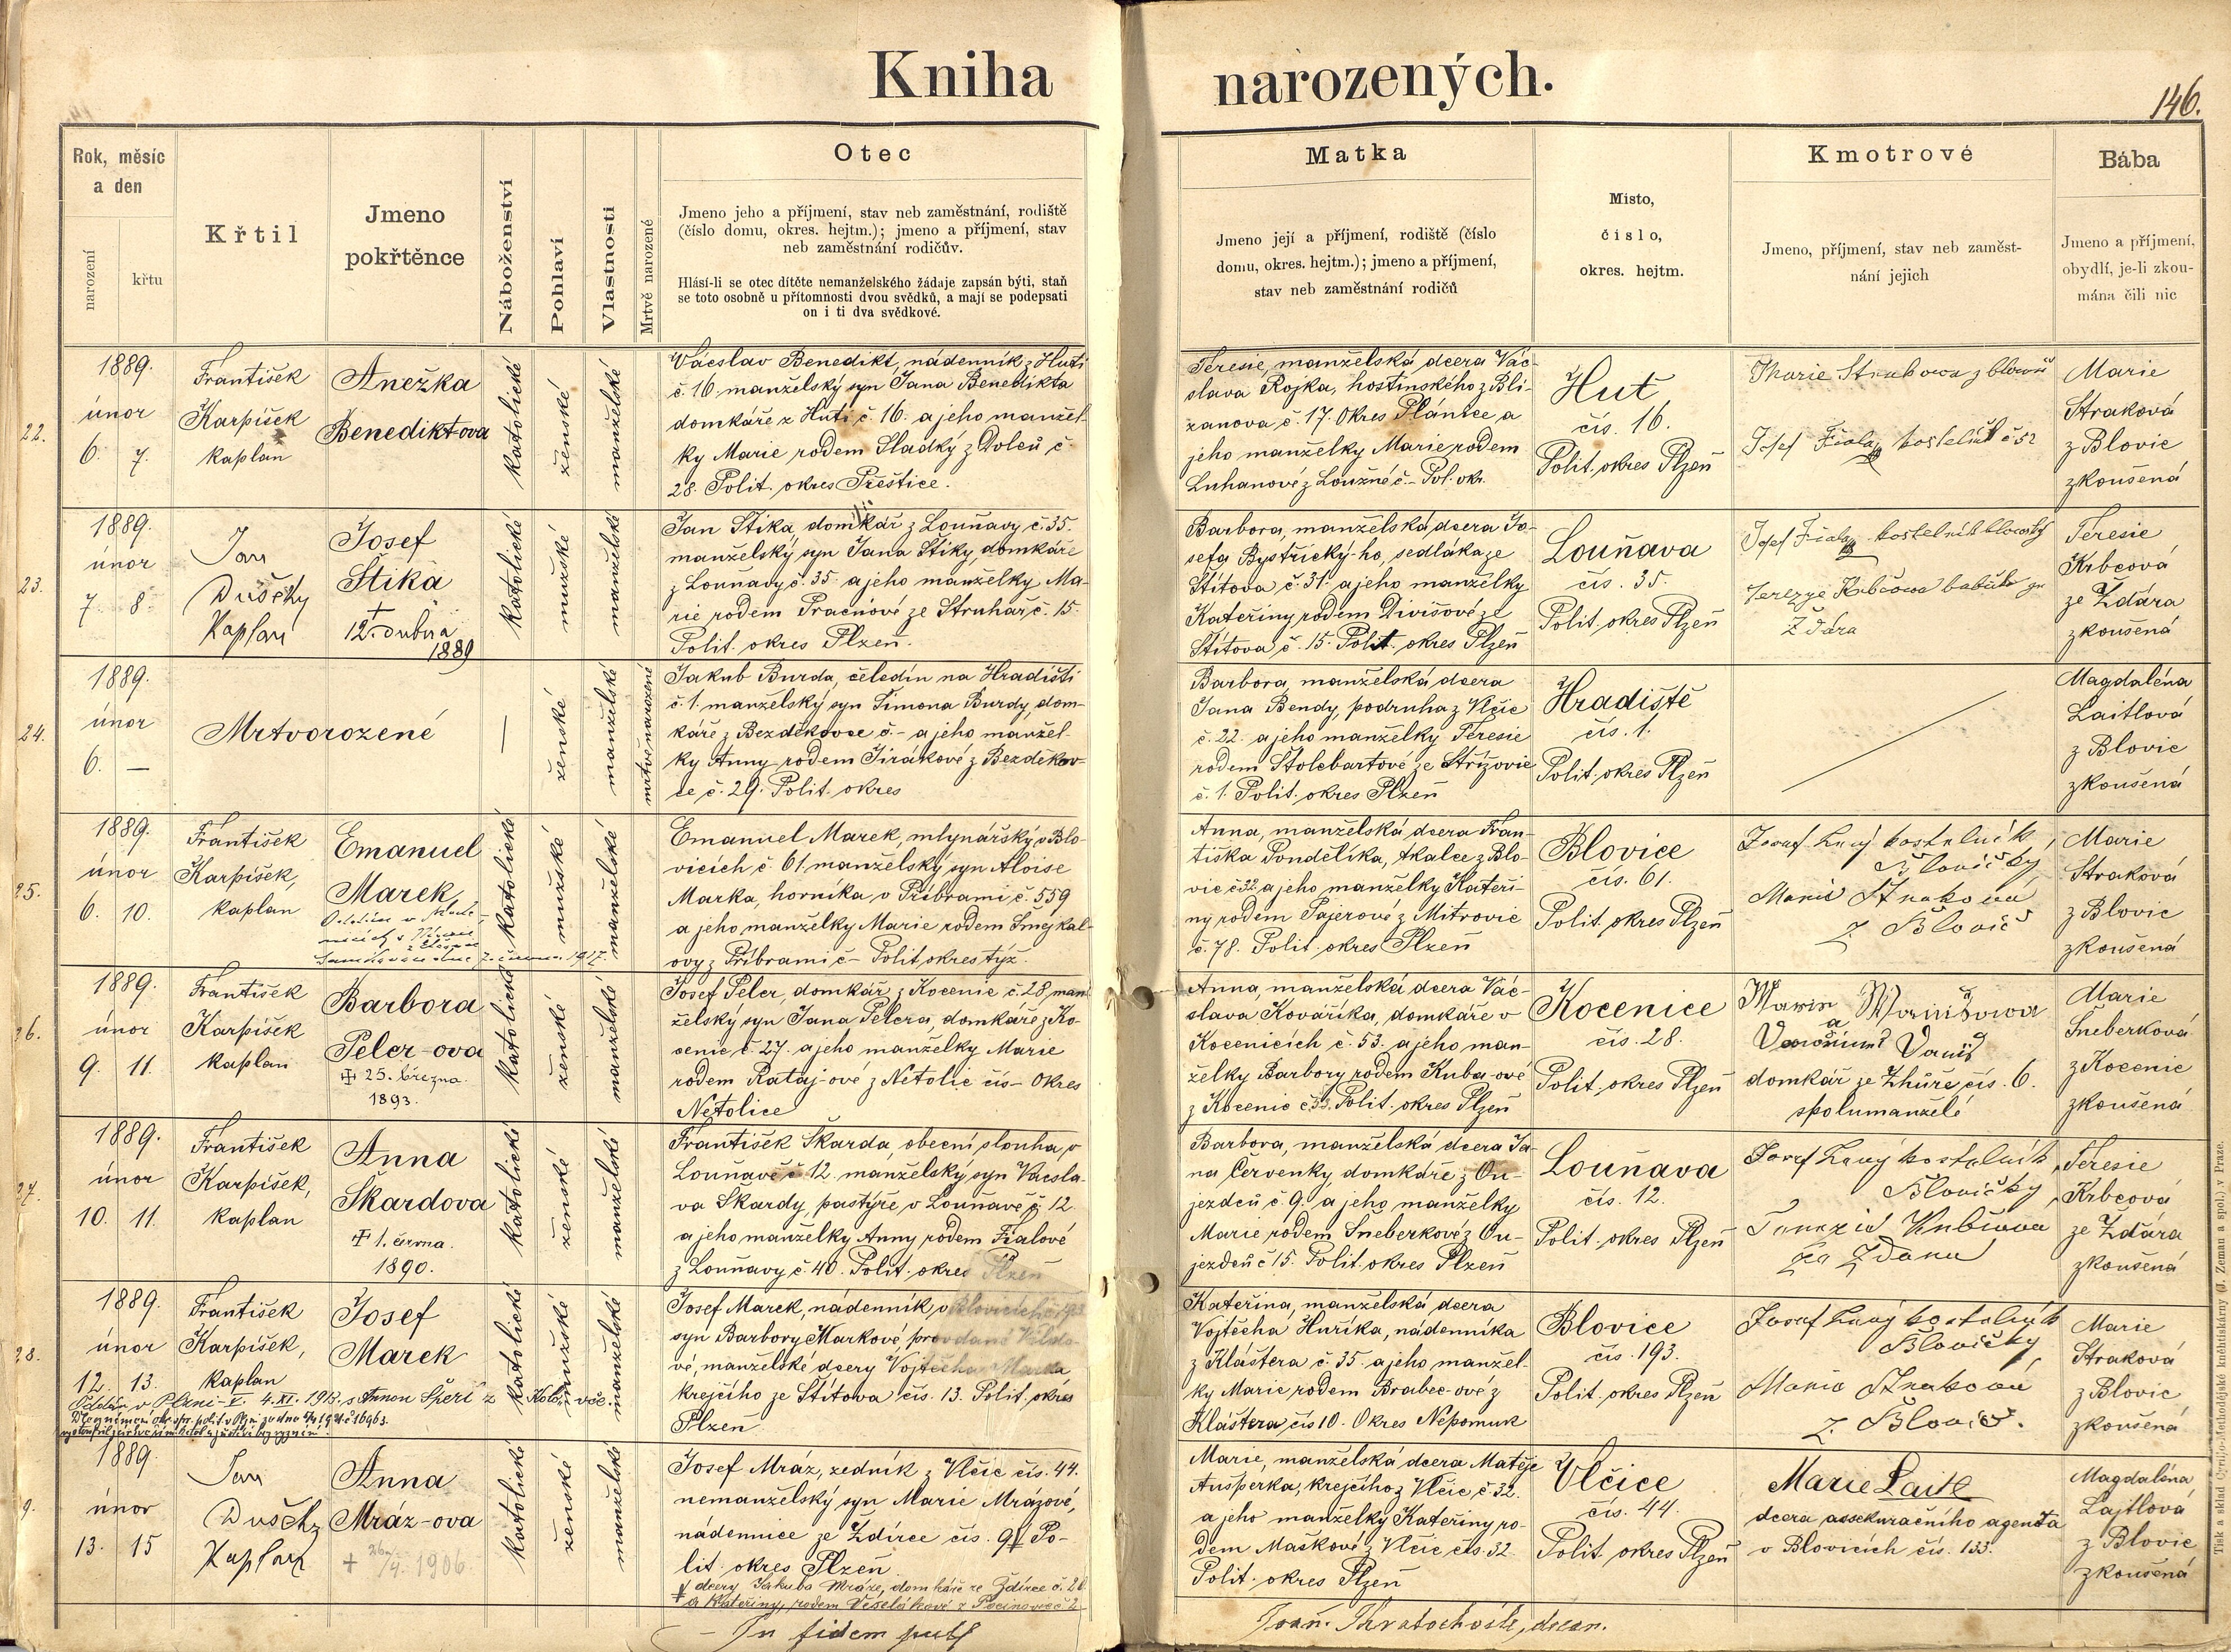 Kniha narozených.
146.
Rok, měsíc
a den
narození
křtu
Křtil
Jmeno
pokřtěnce
Náboženství
Pohlaví
Vlastnosti
Mrtvě narozené
Otec
Jmeno jeho a příjmení, stav neb zaměstnání, rodiště
(číslo domu, okres. hejtm.); jmeno a příjmení, stav
neb zaměstnání rodičův.
Hlásí-li se otec dítěte nemanželského žádaje zapsán býti, staň
se toto osobně u přítomnosti dvou svědků, a mají se podepsati
on i ti dva svědkové.
Matka
Jmeno její a příjmení, rodiště (číslo
domu, okres. hejtm.); jmeno a příjmení,
stav neb zaměstnání rodičů
Misto,
čislo,
okres. hejtm.
Kmotrové
Jmeno, příjmení, stav neb zaměst-
nání jejich
Bába
Jmeno a příjmení,
obydlí, je-li zkou-
mána čili nic
22.
1889.
únor
6. 7.
František
Karpíšek
kaplan
Anežka
Benediktova
katolické
ženské
manželské
Vácslav Benedikt, nádenník z Huti
č. 16. manželský syn Jana Benedikta
domkáře z Huti č. 16. a jeho manžel-
ky Marie rodem Sladký z Dolců č.
28. Polit. okres Přeštice.
Teresie, manželská dcera Vác-
slava Rojka, hostinského z Bli-
žanova č. 17. Okres Plánice a
jeho manželky Marie rodem
Luhanové z Loužné č. - Pol. okr.
Huť
čís. 16.
Polit. okres Plzeň
Marie Strakova z blowic
Josef Fiala kostelník č 52
Marie
Straková
z Blovic
zkoušená
23.
1889.
únor
7. 8.
Jan
Dušek
Kaplan
Josef
Štika
† 12. dubna
1889
katolické
mužské
manželské
Jan Štika, domkář z Louňavy č. 35.
manželský syn Jana Štiky, domkáře
z Louňavy č. 35. a jeho manželky Ma-
rie rodem Pracnové ze Struhař č. 15.
Polit. okres Plzeň.
Barbora, manželská dcera Jo-
sefa Bystřický-ho, sedláka ze
Štítova č. 31. a jeho manželky
Kateřiny rodem Divišové ze
Štítova č. 15. Polit. okres Plzeň
Louňava
čís. 35.
Polit. okres Plzeň
Josef Fiala kostelník
Žďára
Teresie
Krbcová
ze Ždára
zkoušená
24.
1889.
únor
6. —
Mrtvorozené
—
ženské
manželské
mrtvě narozené
Jakub Burda, čeledín na Hradišti
č. 1. manželský syn Šimona Burdy, dom-
káře z Bezděkovce č. - a jeho manžel-
ky Anny rodem Jirákové z Bezděkov-
ce č. 29. Polit. okres
Barbora, manželská dcera
Jana Bendy, podruha z Vlčic
č. 22. a jeho manželky Teresie
rodem Štolcbartové ze Střížovic
č. 1. Polit. okres Plzeň
Hradiště
čís. 1.
Polit. okres Plzeň
Magdaléna
Laitlová
z Blovic
zkoušená
25.
1889.
únor
6. 10.
František
Karpíšek,
kaplan
Emanuel
Marek
katolické
mužské
manželské
Emanuel Marek, mlynářský v Blo-
vicích č 61. manželský syn Aloise
Marka, horníka v Příbrami č. 559
a jeho manželky Marie rodem Smejkal-
ovy z Příbrami č - Polit. okres týž.
Anna, manželská dcera Fran-
tiška Pondělíka, tkalce z Blo-
vic č 32. a jeho manželky Kateři-
ny rodem Pajerové z Mitrovic
č. 78. Polit. okres Plzeň
Blovice
čís. 61.
Polit. okres Plzeň
Josef kostelník
Blovický
Marie Strakova
z Blovic
Marie
Straková
z Blovic
zkoušená
26.
1889.
únor
9. 11.
František
Karpíšek
kaplan
Barbora
Peler-ova
† 25. března
1893.
katolické
ženské
manželské
Josef Peler, domkář z Kocenic č. 28 man-
želský syn Jana Pelera, domkáře z Ko-
cenic č. 27. a jeho manželky Marie
rodem Rataj-ové z Netolic čís - Okres
Netolice
Anna, manželská dcera Vác-
slava Kováříka, domkáře v
Kocenicích č. 53. a jeho man-
želky Barbory rodem Kuba-ové
z Kocenic č. 33. Polit. okres Plzeň
Kocenice
čís. 28.
Polit. okres Plzeň
a
domkář ze Zhůře čís. 6.
spolumanželé
Marie
Šneberková
z Kocenic
zkoušená
27.
1889.
únor
10. 11.
František
Karpíšek,
kaplan
Anna
Škardova
† 1. června.
1890.
katolické
ženské
manželské
František Škarda, obecní slouha, v
Louňavě č 12. manželský syn Vácsla-
va Škardy, pastýře v Louňavě č. 12
a jeho manželky Anny rodem Fialové
z Louňavy č. 40. Polit. okres Plzeň
Barbora, manželská dcera Ja-
na Červenky, domkáře z Ou-
jezdců č 9. a jeho manželky
Marie rodem Šneberkové z Ou-
jezdců č 15. Polit. okres Plzeň
Louňava
čís. 12.
Polit. okres Plzeň
Josef kostelník
Blovický
Teresie
Krbcová
ze Ždára
zkoušená
28.
1889.
únor
12. 13.
František
Karpíšek,
kaplan
Josef
Marek
katolické
mužské
manželské
Oddán v Plzni 4. XI. 1913. s Annou
Josef Marek, nádenník v Blovicích č. 193
syn Barbory Markové, provdané
vé, manželské dcery Vojtěcha Marka
krejčího ze Štítova čís. 13. Polit. okres
Plzeň
Kateřina, manželská dcera
Vojtěcha Huříka, nádenníka
z Kláštera č. 35. a jeho manžel-
ky Marie rodem Brabec-ové z
Kláštera čís 10. Okres Nepomuk
Blovice
čís. 193.
Polit. okres Plzeň
Josef kostelník
Blovický
Marie Strakova
z Blovic.
Marie
Straková
z Blovic
zkoušená
9.
1889.
únor
13. 15
Jan
Dušek
Kaplan
Anna
Mráz-ova
+ 26/4. 1906
katolické
ženské
manželské
Josef Mráz, zedník z Vlčic čís. 44.
nemanželský syn Marie Mrázové,
nádennice ze Ždírce čís. 9 Po-
lit. okres Plzeň
dcery Jakuba Mráze, domkáře ze Ždírce č. 2
a Kateřiny, rodem Veselákové z
Marie, manželská dcera Matěje
Aušperka, krejčího z Vlčic č 32.
a jeho manželky Kateřiny ro-
dem Maškové z Vlčic čís. 32.
Polit. okres Plzeň
Vlčice
čís. 44.
Polit. okres Plzeň
Marie Laitl
dcera assekuračního agenta
v Blovicích čís. 133.
Magdaléna
Lajtlová
z Blovic
zkoušená
In fidem publ
Joan. Kratochvíle, decan.
Tisk a sklad Cyrillo-Methodějské knihtiskárny (J. Zeman a spol.) v Praze.